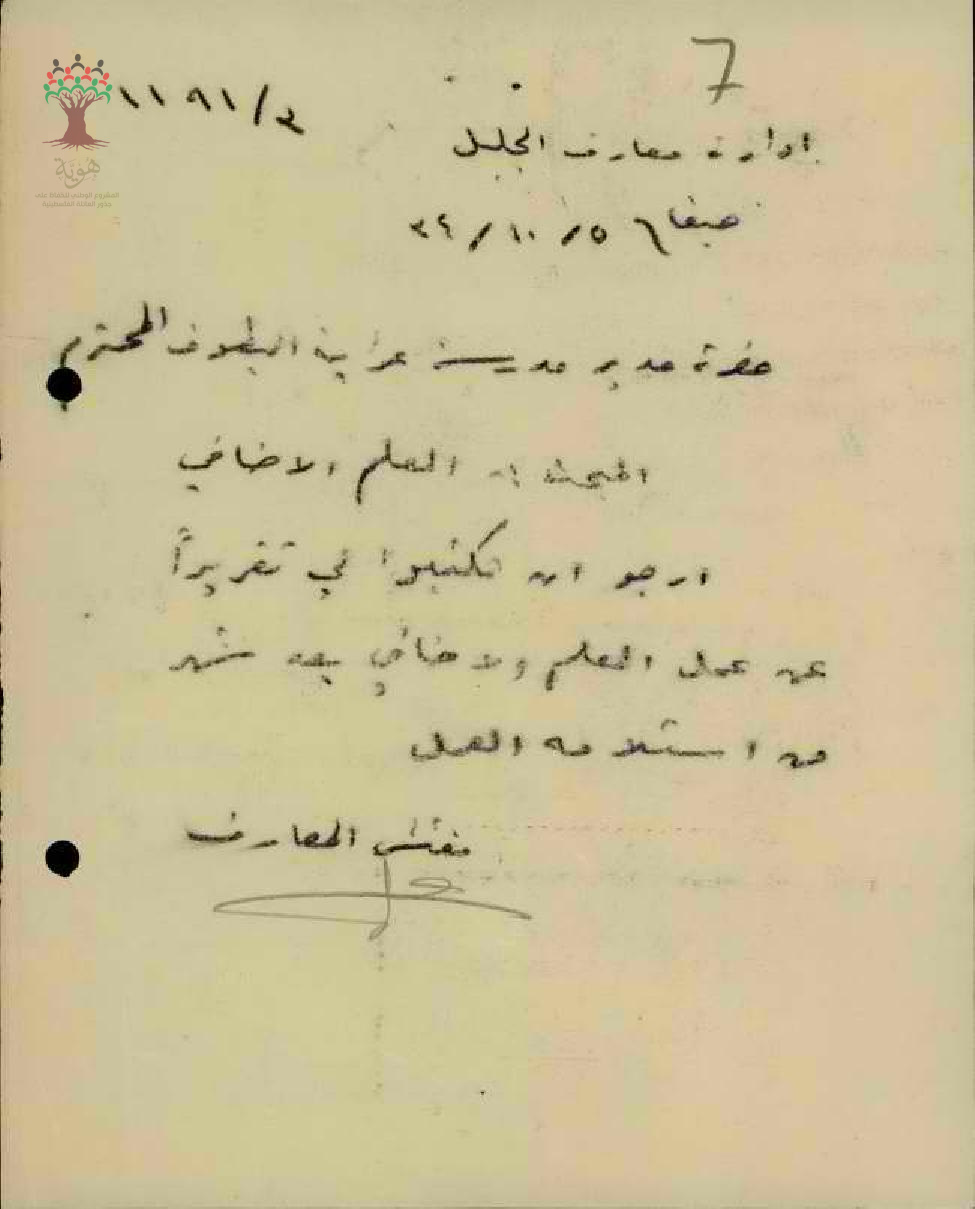 7
١١٩١/٣
ادارة معارف الجليل
حيفا ٥/١٠/٣٤
هوية
المشروع الوطني للحفاظ على
جذور العائلة الفلسطينية
حضرة مدير مدرسة عرابة البطوف المحترم
المعلم الاضافي
ارجو ان تكتبوا لي تقريراً
عن عمل المعلم الاضافي بعد شهر
من استلامه العمل
مفتش المعارف